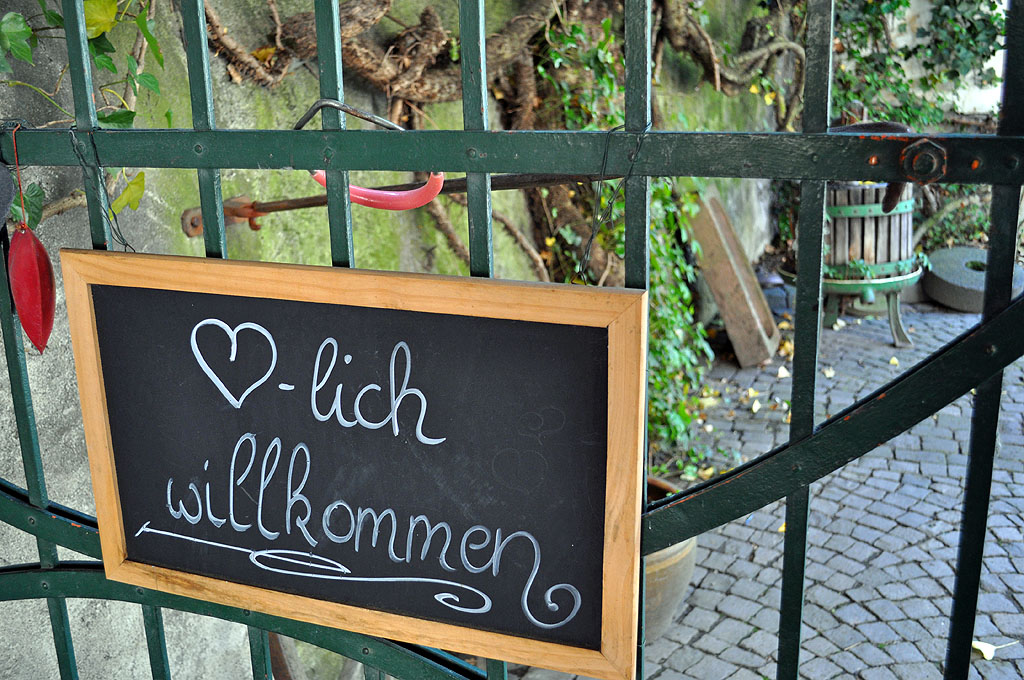 ♡-lich
willkommen